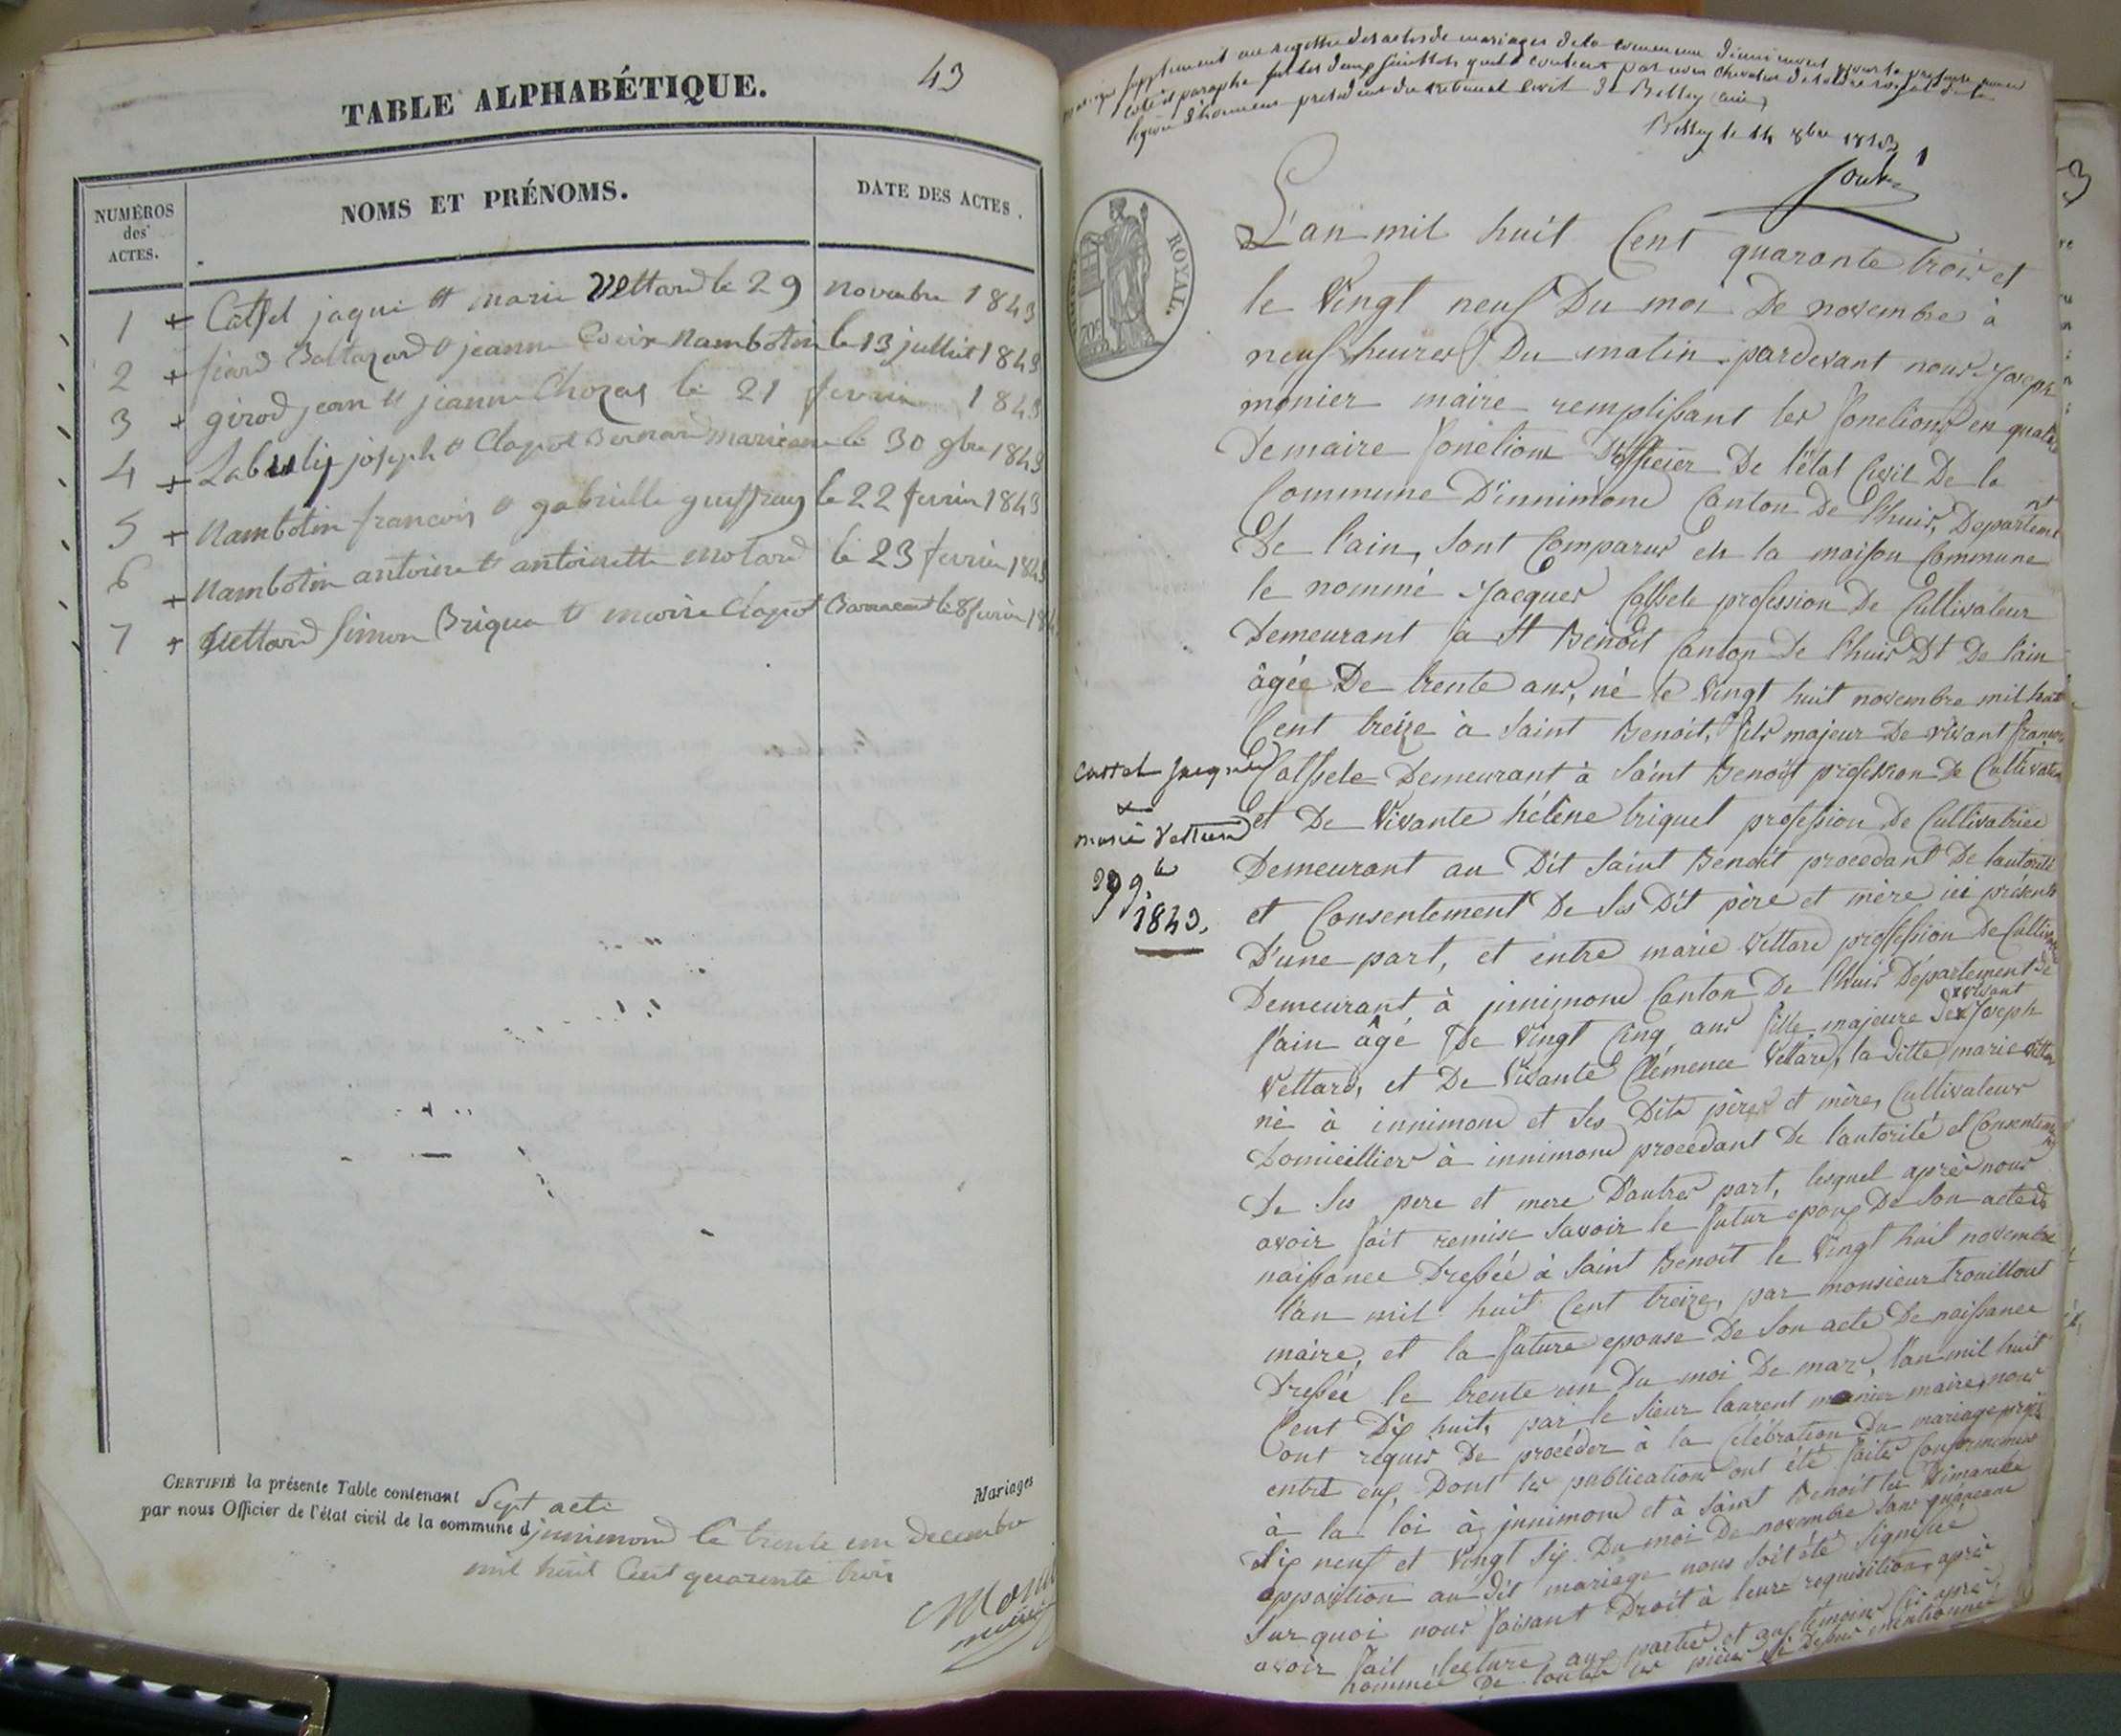 43
TABLE ALPHABÉTIQUE.
NUMÉROS
des
ACTES.
NOMS ET PRÉNOMS.
DATE DES ACTES.
1 + Catsel jaque et marie Vettard le 29 novembre 1843
2 + Baltazard et jeanne Nambotin le 13 juillet 1843
3 + girod jean et jeanne Chozas le 21 fevrier 1843
4 + joseph et Clapot Bernard marieanne le 30 9bre 1843
5 + Nambotin francois et gabrielle guiffray le 22 fevrier 1843
6 + Nambotin antoine et antoinette motard le 23 fevrier 1843
7 + Vettard Simon Briquet et marie Clapot le 8 fevrier 184
CERTIFIÉ la présente Table contenant Sept acte
par nous Officier de l'état civil de la commune d innimond le trente un decembre
mil huit Cent quarante trois
Mariages
Supplement au registre des actes de mariages de la commune d'innimont pour la presente année
coté et paraphé par nous Chevalier de l'ordre royal de la
légion d'honneur president du tribunal Civil de Belley (ain)
Belley le 14 8bre 1843
1
ROYAL.
70c
L'an mil huit Cent quarante trois et
le Vingt neuf Du moi De novembre à
neuf heures Du matin pardevant nous Joseph
monier maire remplissant les fonctions en qualité
De maire fonctions D'officier De l'état Civil De la
Commune D'innimond Canton De l'huis, Departement
De l'ain, sont Comparus en la maison Commune
le nommé Jacques Catsele profession De Cultivateur
Demeurant à St Benoit Canton De l'huis Dt De l'ain
âgée De trente ans, né le Vingt huit novembre mil huit
Cent treize à Saint Benoit, fils majeur De vivant françois
Catsele Demeurant à Saint Benoit profession De Cultivateur
et De Vivante hélène triquet profession De Cultivatrice
Demeurant au Dit Saint Benoit procedant De l'autorité
et Consentement De Ses Dit père et mère ici présents
D'une part, et entre marie Vettard profession De Cultivatrice
Demeurant à innimond Canton De l'huis Département De
l'ain âgé De Vingt Cinq ans fille majeure De vivant Joseph
Vettard, et De Vivante Clémence Vettard, la ditte marie Vettard
né à innimond et Ses Dits père et mère, Cultivateurs
Domicilliers à innimond procedant De l'autorité et Consentement
De Ses pere et mere D'autres part, lesquel après nous
avoir fait remise Savoir le futur epoux De Son acte de
naissance Dressée à Saint Benoit le Vingt huit novembre
l'an mil huit Cent treize, par monsieur trouillout
maire, et la future epouse De Son acte De naissance
Dressée le trente un Du moi De mars, l'an mil huit
Cent Dix huit, par le Sieur laurent monier maire, nous
ont requis De procéder à la Célébration Du mariage projeté
entre eux, Dont les publications ont été faites Conformement
à la loi à innimond et à Saint Benoit les Dimanche
Dix neuf et Vingt Six Du moi De novembre Sans qu'aucune
opposition au Dit mariage nous Soit été Signifiée
Sur quoi nous faisant Droit à leurs requisition, après
avoir fait lecture aux parties et aux témoins Ci après
nommée De toutes les pièces Ci Dessus mentionnée
Castel Jacques
&
marie Vettard
29 9bre
1843.